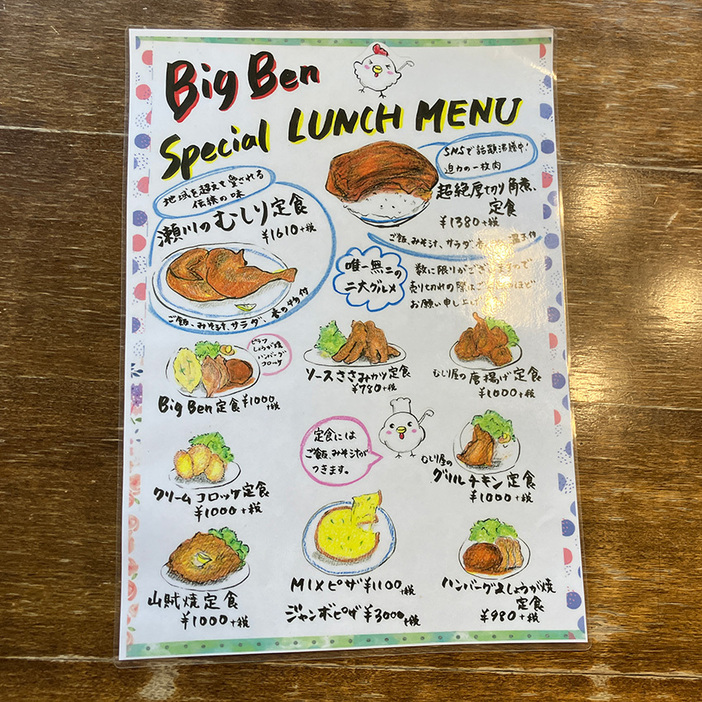 Big Ben
Special LUNCH MENU
地域を超えて愛される
伝統の味
瀬川のむしり定食
¥1610+税
ご飯、みそ汁、サラダ、香の物付
SNSで話題沸騰中!
迫力の一枚肉
超絶厚切り角煮、
定食
¥1380+税
ご飯、みそ汁、サラダ
唯一無二の
二大グルメ
数に限りがございますので
売り切れの際は
お願い申し上げ
ピラフ
しょうが焼
ハンバーグ
コロッケ
Big Ben 定食 ¥1000
+税
ソースささみカツ定食
¥780+税
むしり屋の唐揚げ定食
¥1000+税
クリームコロッケ定食
¥1000+税
定食には
ご飯、みそ汁が
つきます。
むしり屋の
グリルチキン定食
¥1000+税
山賊焼定食
¥1000+税
MIXピザ ¥1100
+税
ジャンボピザ ¥3000
+税
ハンバーグ&しょうが焼
定食
¥980+税